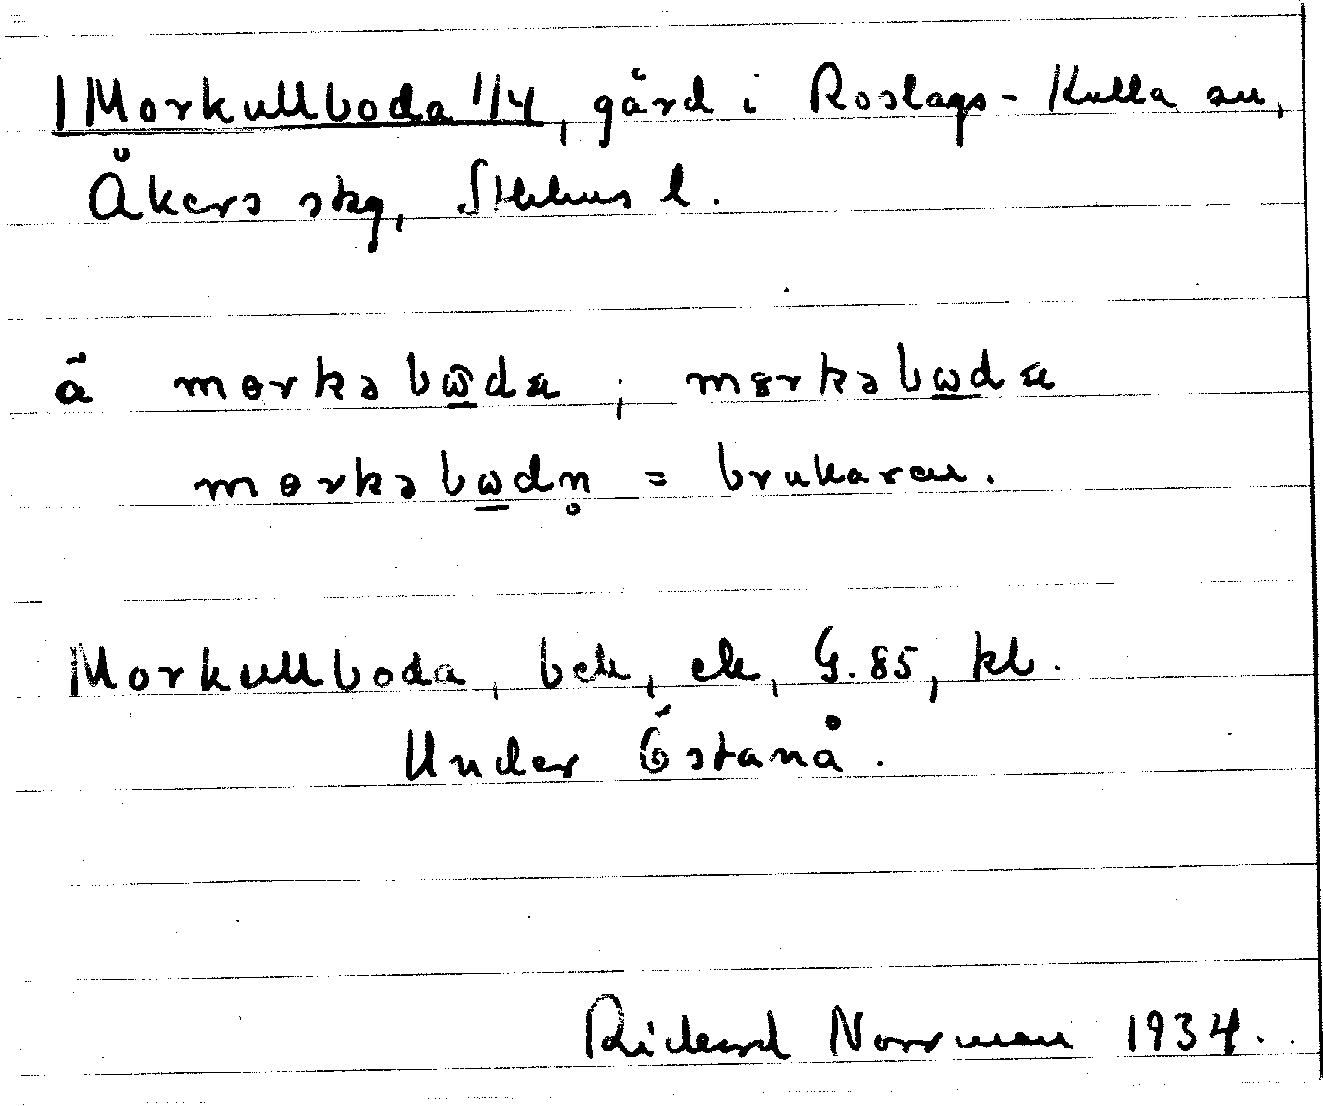 1 Morkullboda 1/4, gård i Roslags-Kulla sn,
Åkers skg, Sthlms l.
å mɵrkabω̃da ; mɵrkabωda
mɵrkabωdn̥ = brukaren.
Morkullboda, bek, ek, G. 85, kb.
Under Östanå.
Rickard Norrman 1934.